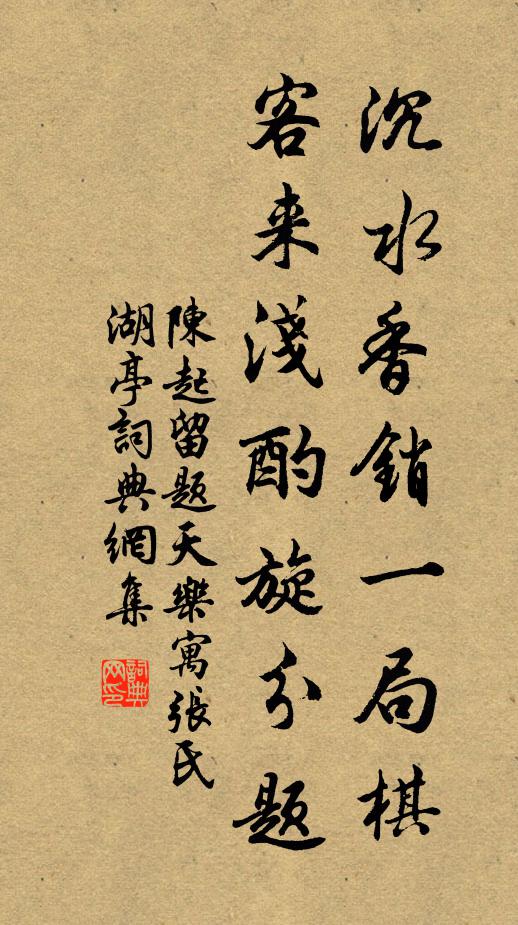 沉水香銷一局棋
客来淺酌旋分題
陳起留題天樂寓張氏
湖亭詞典網集
詞典
网印